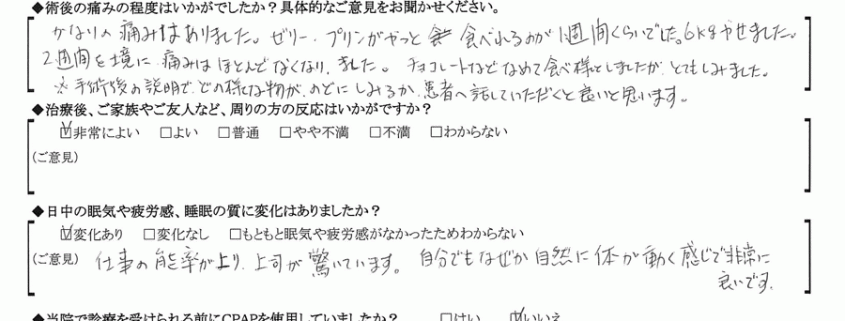 ◆術後の痛みの程度はいかがでしたか？具体的なご意見をお聞かせください。
かなりの痛みはありました。ゼリー、プリンがやっと 食べれるのが1週間くらいでした。6kgやせました。
2週間を境に、痛みはほとんどなくなりました。チョコレートなどなめて食べ様としましたが、とてもしみました。
※手術後の説明で、どの様な物が、のどにしみるか、患者へ話していただくと良いと思います。
◆治療後、ご家族やご友人など、周りの方の反応はいかがですか？
☑非常によい □よい □普通 □やや不満 □不満 □わからない
(ご意見)
◆日中の眠気や疲労感、睡眠の質に変化はありましたか？
☑変化あり □変化なし □もともと眠気や疲労感がなかったためわからない
(ご意見) 仕事の能率が上り、上司が驚いています。自分でもなぜか自然に体が働く感じで非常に
良いです。
◆当院で診療を受けられる前にCPAPを使用していましたか？ □はい ☑いいえ